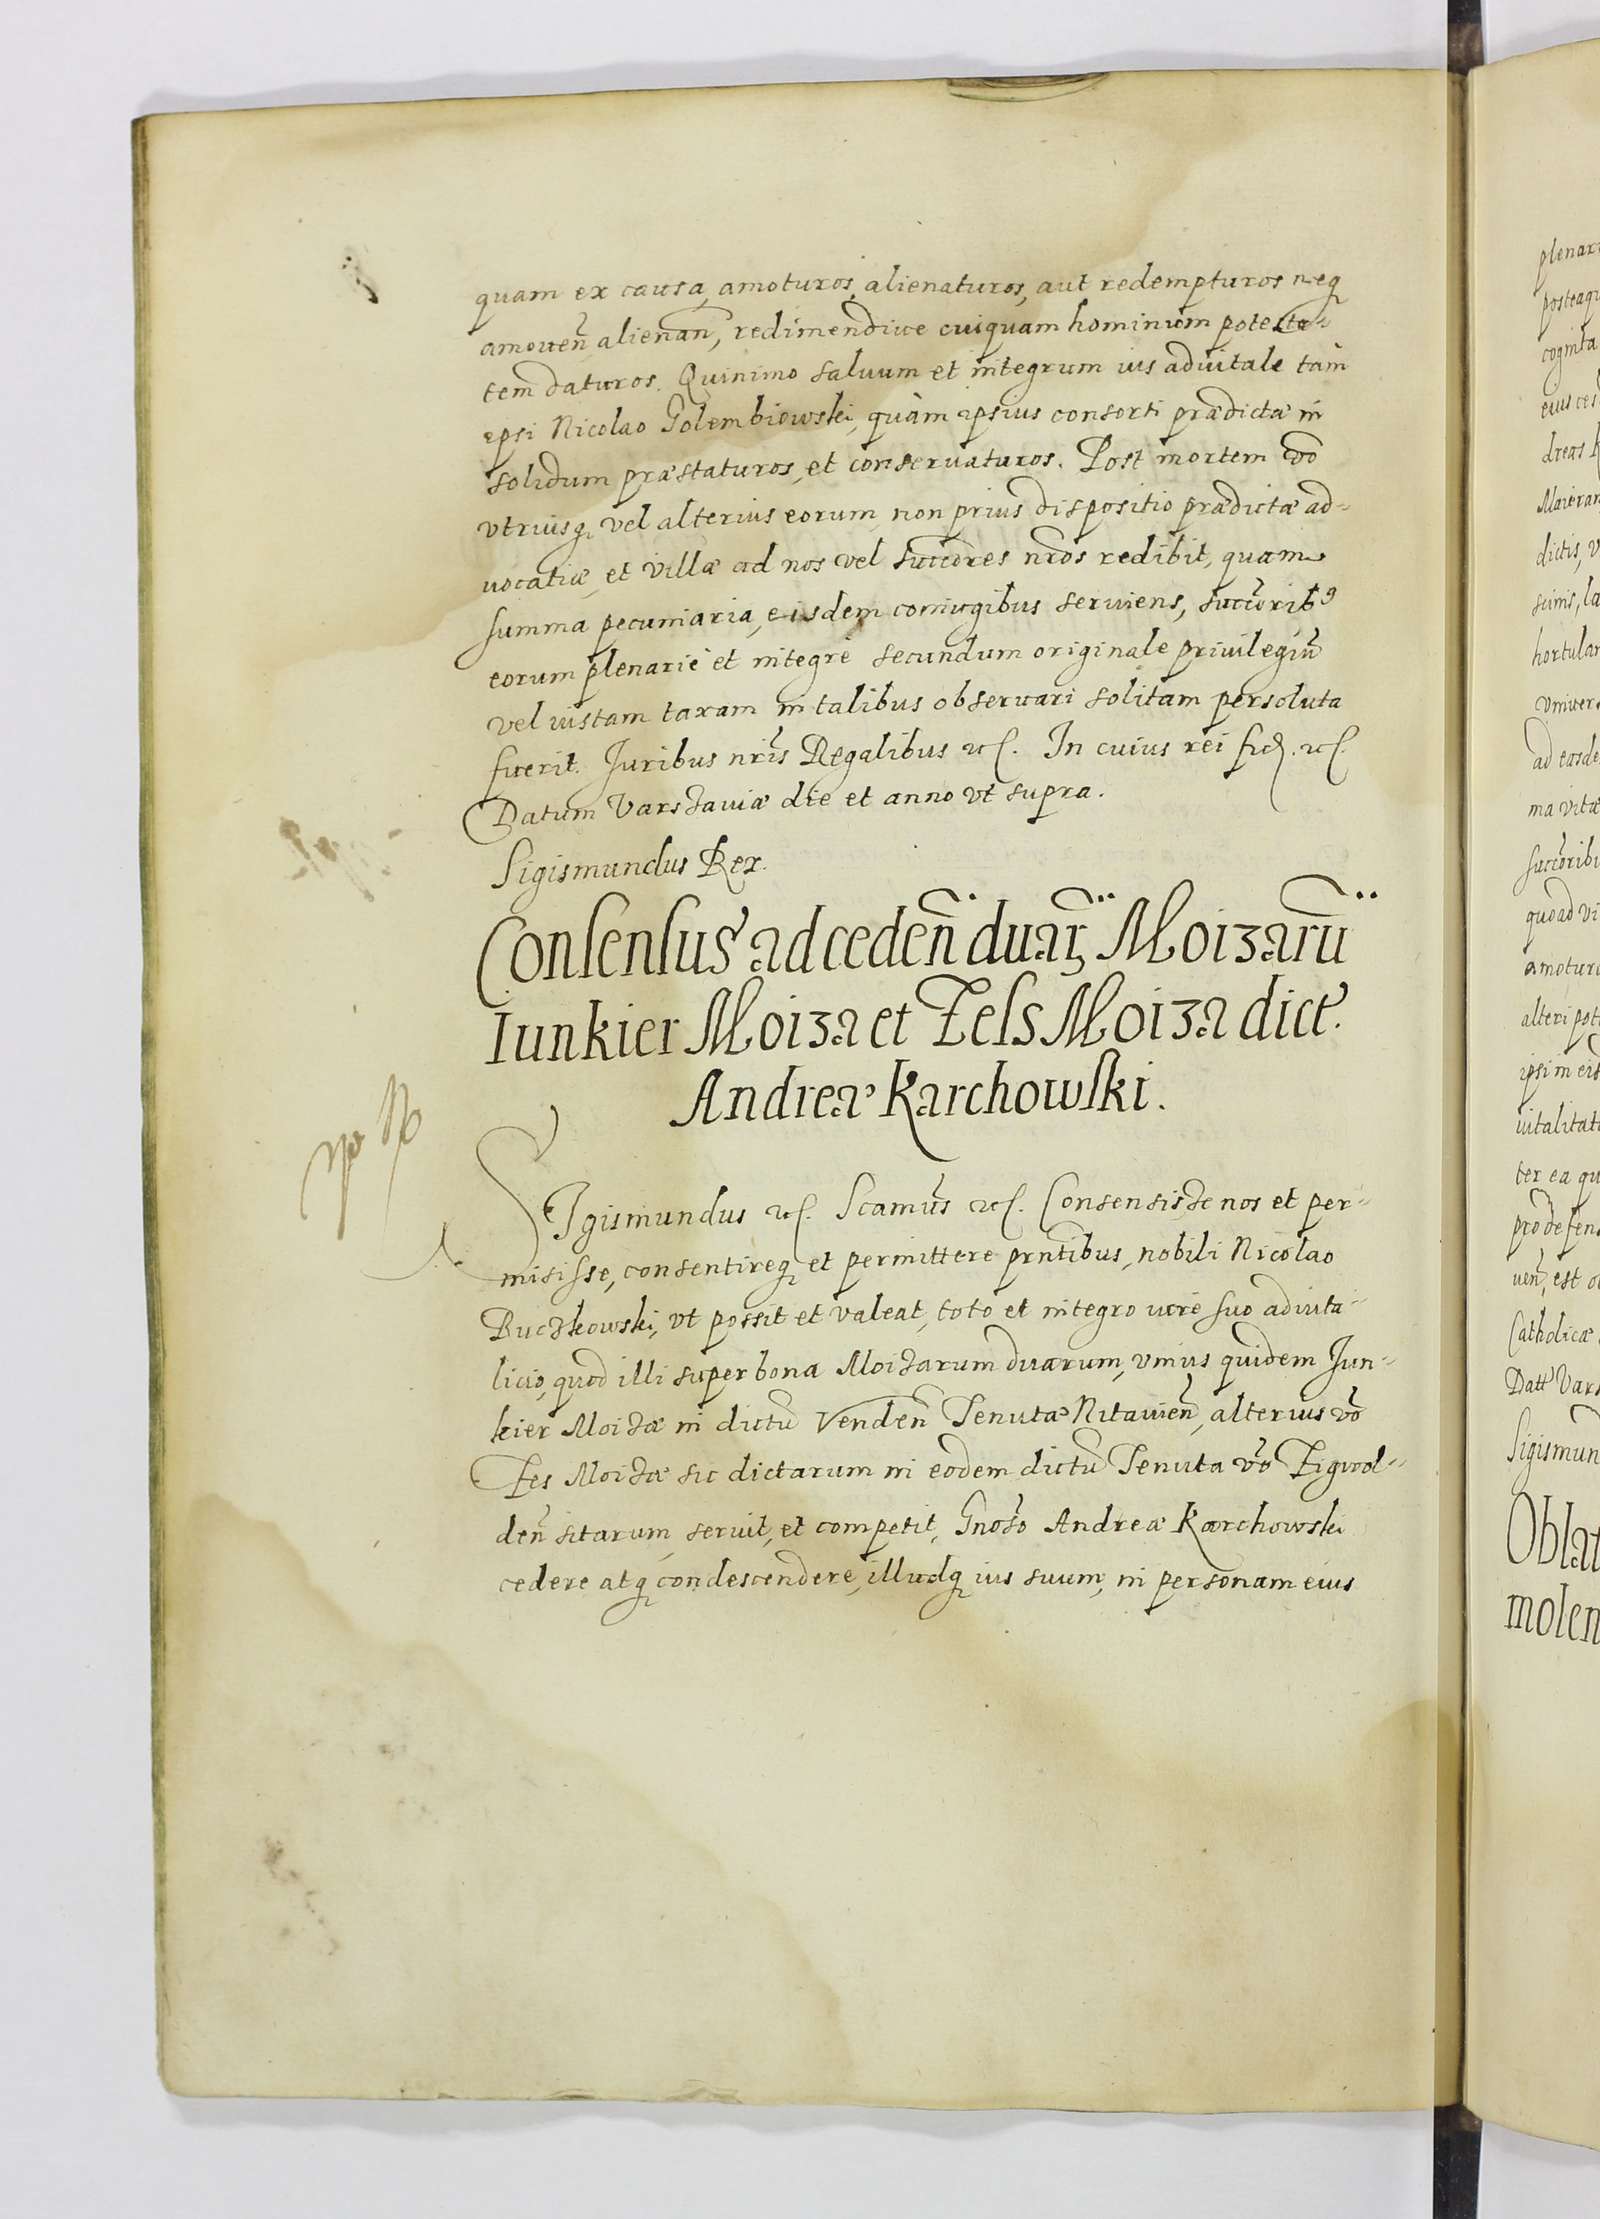 quam ex causa, amoturos, alienaturos, aut redempturos neq
amouen̄ alienan̄, redimendiue cuiquam hominum potesta-
tem daturos. Quinimo saluum et integrum ius aduitale tam
ipsi Nicolao Golembiowski, quàm ipsius consorti prædictæ in
solidum præstaturos, et conseruaturos. Post mortem vo̅
vtriusq, vel alterius eorum, non prius dispositio prædictæ ad-
uocatiæ, et villæ ad nos vel succo̅res nr̅os redibit, quam
summa pecuniaria, eisdem coniugibus seruiens, succo̅rib9
eorum plenariè et integrè secundum originale priuilegiū
vel iustam taxam in talibus obseruari solitam persoluta
fuerit. Juribus nr̅is Regalibus etc. In cuius rei fid. etc.
Datum Varszauiæ die et anno vt supra.
Sigismundus Rex.
Consensus ad ceden̄ duaꝝ Moizarū
Iunkier Moiza et Zels Moiza dict.
Andreæ Karchowski.
SIgismundus etc. S̅camus etc. Consensisse nos et per-
misisse, consentireq et permittere prn̅tibus, nobili Nicolao
Buczkowski, vt possit et valeat, toto et integro iure suo aduita-
licio, quod illi super bona Moizarum duarum, vnius quidem Jun-
kier Moizæ in dictū Venden̄ Tenuta Nitauien̄, alterius vo̅
Zes Moizæ sic dictarum in eodem dictū Tenuta vo̅ Zigwol-
den̄ sitarum, seruit, et competit, Gno̅so Andreæ Karchowski
cedere atq condescendere, illudq ius suum, in personam eius
plenari
posteaqu
cognita
eius ces
dreas K
Maieran
dictis, v
scinis, la
hortulan
vniuers
ad easde
ma vitæ
succo̅ribu
quoad vi
amoturo
alteri pot
ipsi in eis
uitalitat
ter ea qu
pro defens
uen̄, est o
Catholicæ
Datt Vars
Sigismun
Oblat
molen